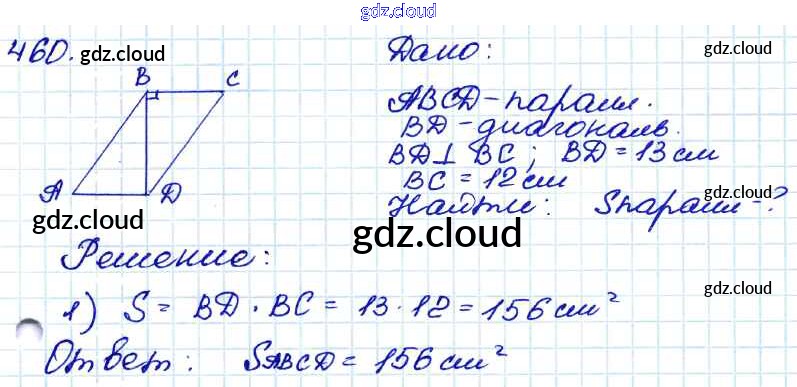 gdz.cloud
460.
gdz.cloud
Дано:
gdz.cloud
B C
ABCD - паралл.
BD - диагональ.
BD ⊥ BC ; BD = 13 см
BC = 12 см
A D
gdz.cloud
Найти: Sпаралл - ?
gdz.cloud
gdz.cloud
Решение:
gdz.cloud
1) S = BD · BC = 13 · 12 = 156 см²
Ответ: SABCD = 156 см²